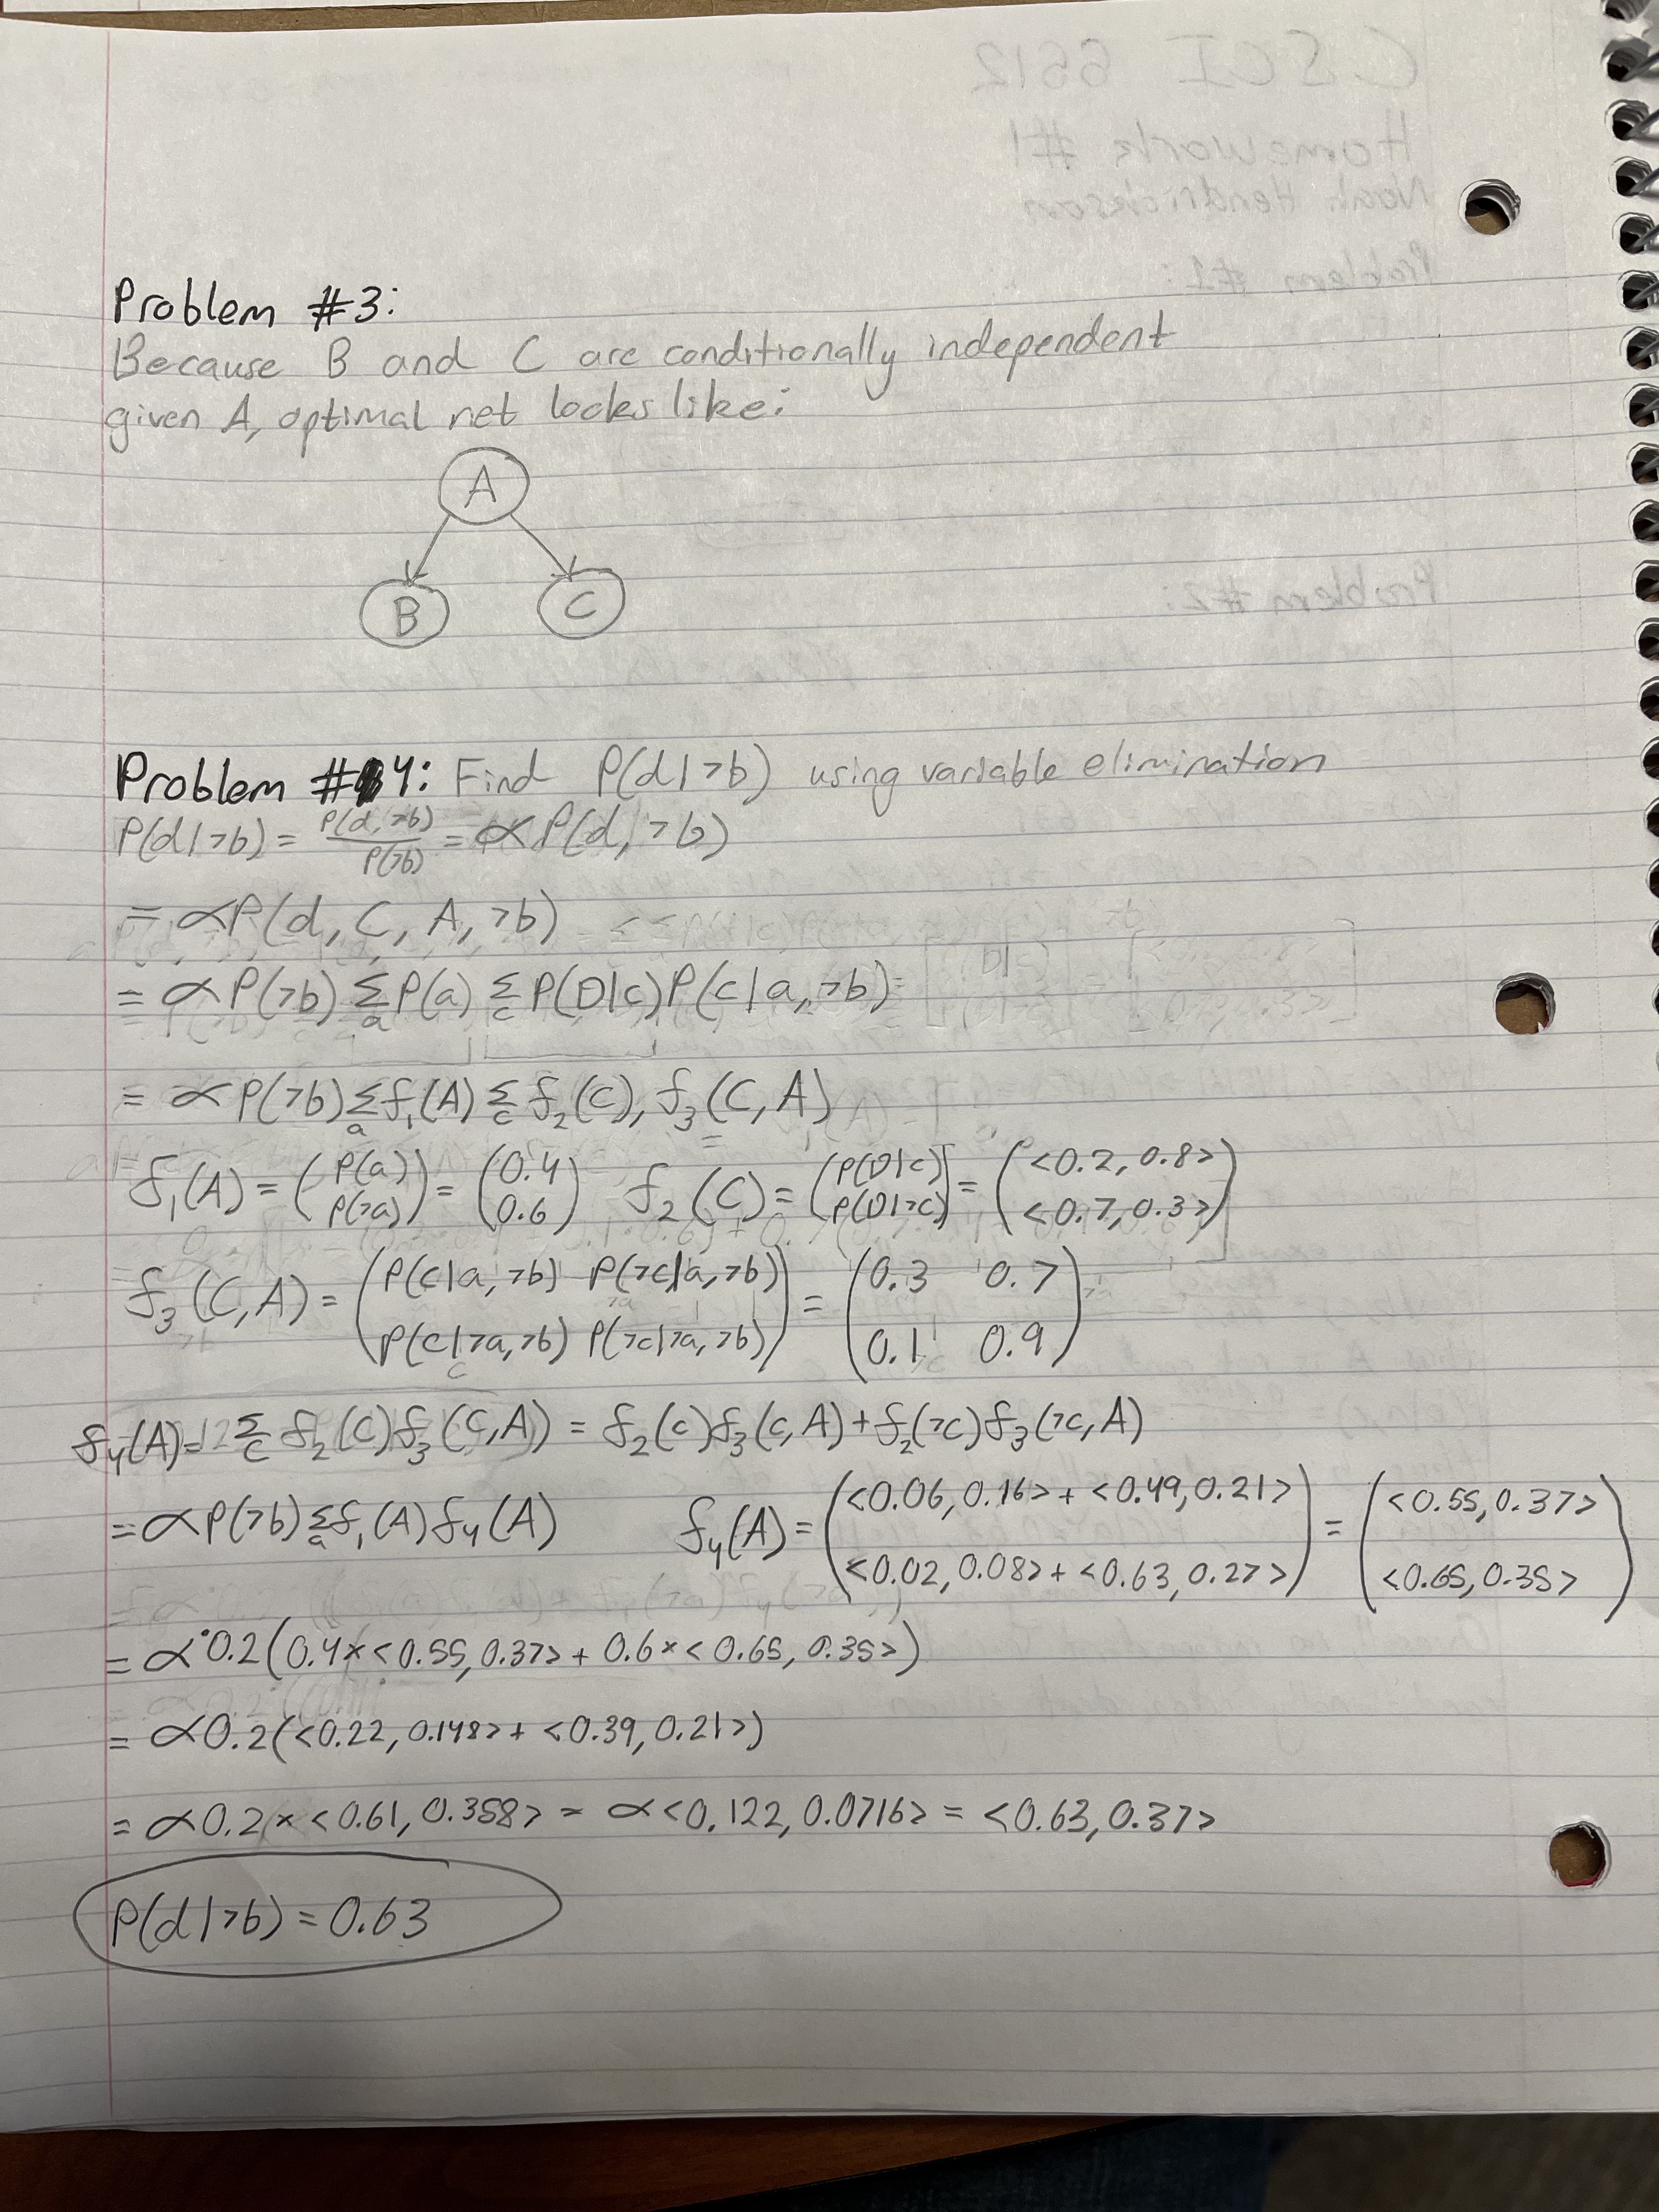 CSCI 5512
Homework #1
Noah Hendrickson
Problem #1:
Problem #2:
Problem #3:
Because B and C are conditionally independent
given A, optimal net looks like:
A
B C
Problem #4: Find P(d|¬b) using variable elimination
P(d|¬b) = P(d,¬b)/P(¬b) = αP(d,¬b)
= αP(d, C, A, ¬b)
= αP(¬b) Σ_a P(a) Σ_c P(D|c)P(c|a,¬b)
= αP(¬b) Σ_a f₁(A) Σ_c f₂(C), f₃(C,A)
f₁(A) = (P(a) P(¬a)) = (0.4 0.6) f₂(C) = (P(D|c) P(D|¬c)) = (<0.2, 0.8> <0.7, 0.3>)
f₃(C,A) = (P(c|a,¬b) P(¬c|a,¬b) P(c|¬a,¬b) P(¬c|¬a,¬b)) = (0.3 0.7 0.1 0.9)
f₄(A) = Σ_c f₂(C)f₃(C,A) = f₂(c)f₃(c,A) + f₂(¬c)f₃(¬c,A)
= αP(¬b) Σ_a f₁(A) f₄(A) f₄(A) = (<0.06, 0.16> + <0.49, 0.21> <0.02, 0.08> + <0.63, 0.27>) = (<0.55, 0.37> <0.65, 0.35>)
= α·0.2(0.4×<0.55, 0.37> + 0.6×<0.65, 0.35>)
= α0.2(<0.22, 0.148> + <0.39, 0.21>)
= α0.2×<0.61, 0.358> = α<0.122, 0.0716> = <0.63, 0.37>
P(d|¬b) = 0.63